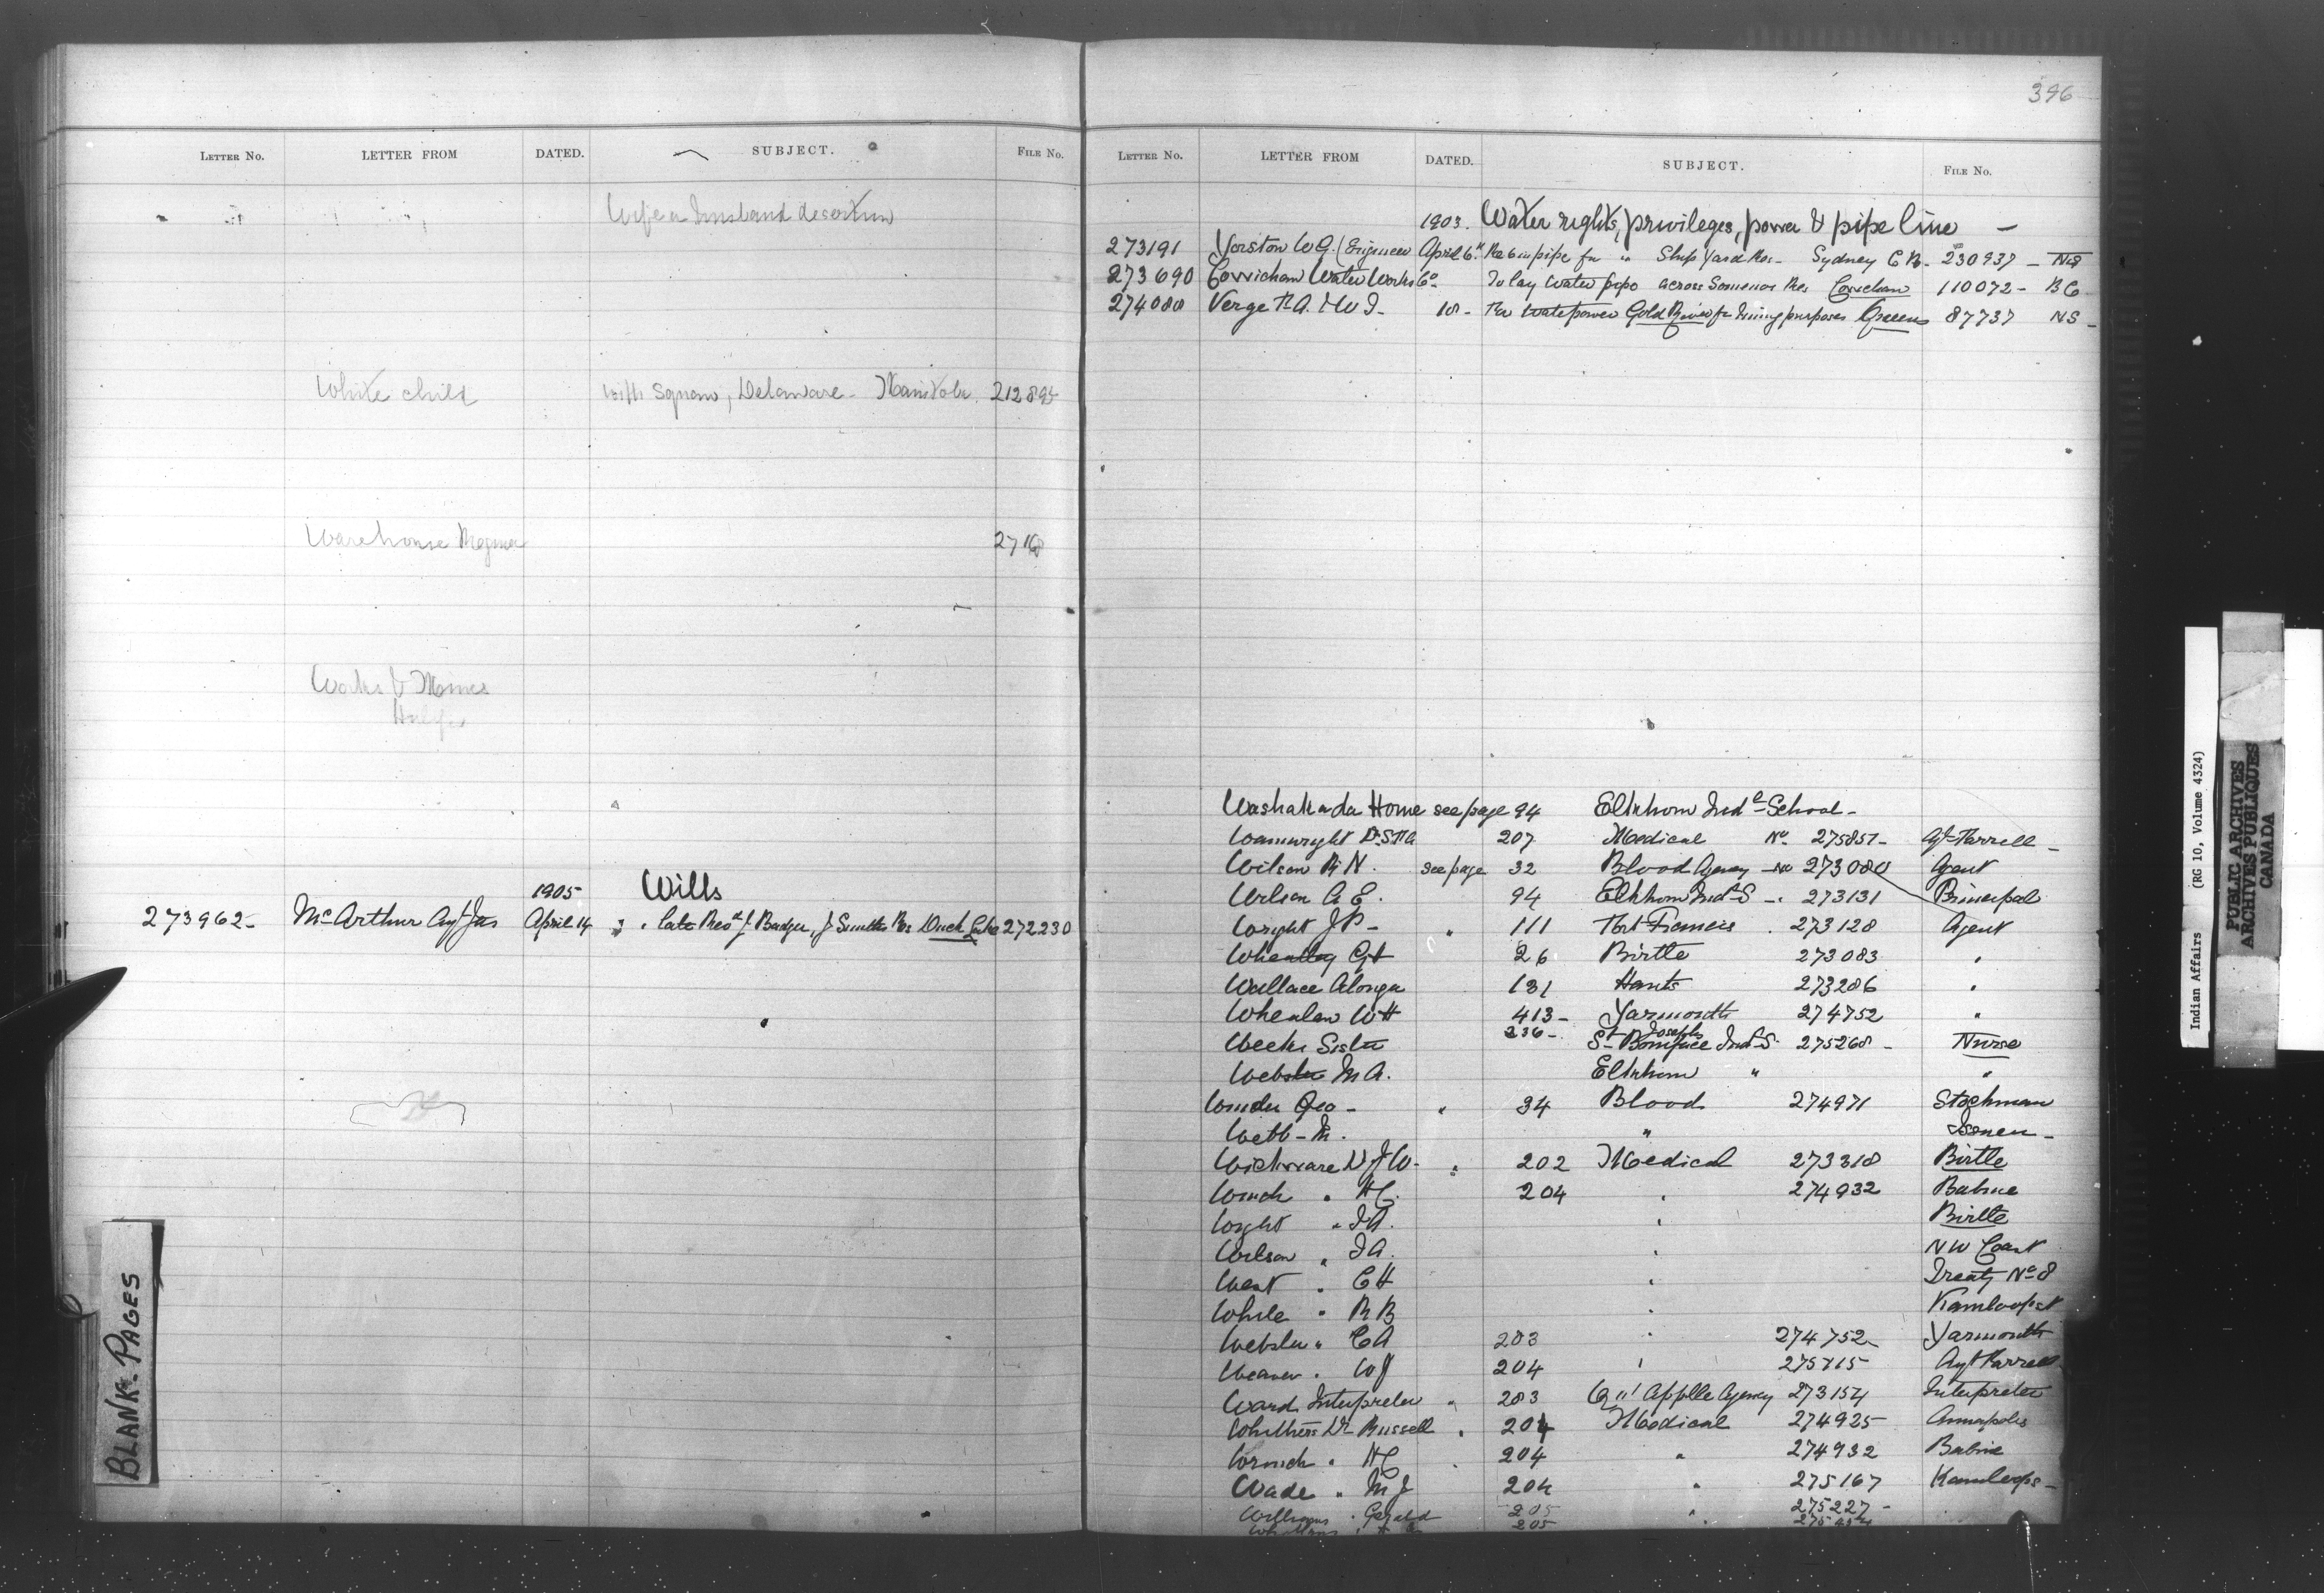 396
LETTER NO. LETTER FROM DATED. SUBJECT. FILE No.
Wife or husband desertion
White child with Squaw, Delaware - Manitoba. 212895
Warehouse Regina 2718
Works & Mines
1905 Wills
273962- McArthur Agt Jas April 14 " . late Theo & J. Badger, J Smiths Res Duck Lake 272230
BLANK-PAGES
LETTER NO. LETTER FROM DATED. SUBJECT. FILE No.
1903. Water rights, privileges, power & pipe line -
273191 Yorston W.G. (Engineer April 6" Re 6 in pipe for Ship Yard Res- Sydney C B- 230937 - NS
273690 Cowichan Water Works Co- To lay water pipe across Somenos Res Cowichan 110072- BC
274080 Verge R A. 18- Re Water power Gold River for mining purposes Greens 87737 NS-
Washakada Home see page 94 Elkhorn Indl School-
Wainwright Dr 207 Medical No. 275857- Agt Harrell -
Wilson R N. see page 32 Blood Agency - No 273080 Agent
Wilson A E. 94 Elkhorn Indl S - 273131 Principal
Wright J P- " 111 Fort Frances . 273128 Agent
Wheatley G H 26 Birtle 273083 "
Wallace Alonza 131 Hants 273286 "
Whealen W H 413- Yarmouth 274752 "
Weeks Sister 236- St Boniface Josephs Indl S. 275268- Nurse
Webster M A. Elkhorn " "
Winder Geo- " 34 Blood 274971 Stockman
Webb- M. " Issuer-
Wickware Dr J W- " 202 Medical 273318 Birtle
Winch " H C. 204 " 274932 Babine
Wright " I A. " Birtle
Wilson " D A. " N W Coast
West " C H " Treaty No 8
White " R B " Kamloops
Webster " C A 203 " 274752- Yarmouth
Weaver " W J 204 " 275715 Agt Harrell
Ward Interpreter " 283 Qu'Appelle Agency 273154 Interpreter
Withers Dr Russell " 204 Medical 274925 Annapolis
Wrinch " H C 204 " 274932 Babine
Wade " M J 204 " 275167 Kamloops-
Williams " Gerald 205 " 275227-
205
Indian Affairs (RG 10, Volume 4324)
PUBLIC ARCHIVES
ARCHIVES PUBLIQUES
CANADA